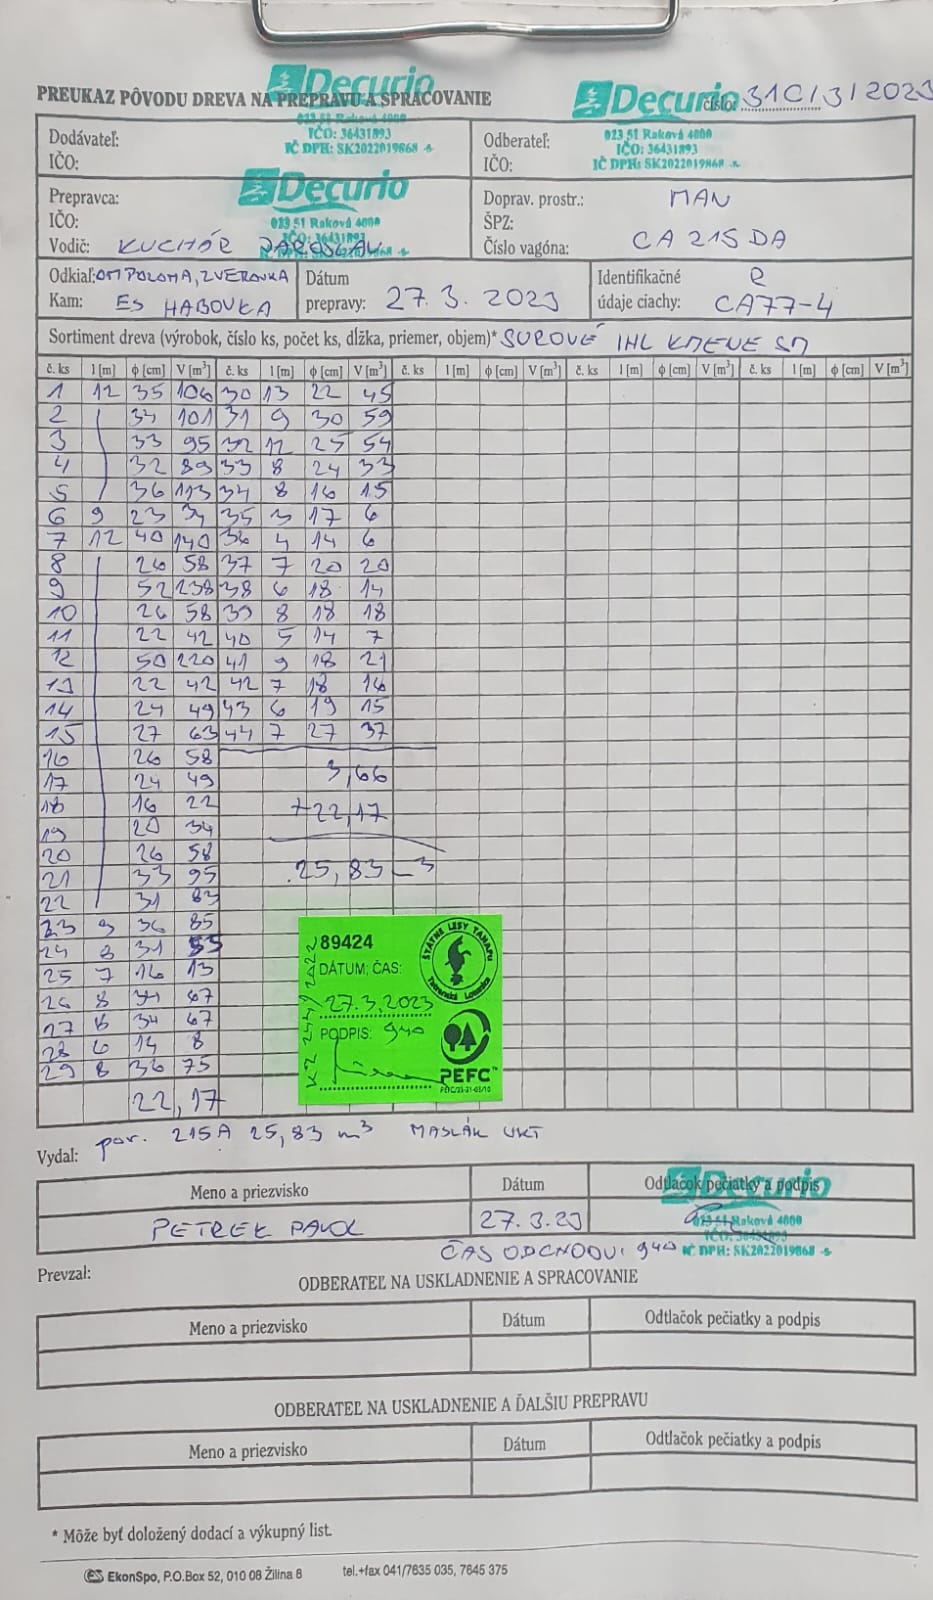 Decurio
PREUKAZ PÔVODU DREVA NA PREPRAVU A SPRACOVANIE
023 51 Raková 4000
IČO: 36431893
IČ DPH: SK2022019868
Decurio číslo: 31C/3/2023
023 51 Raková 4000
IČO: 36431893
IČ DPH: SK2022019868
Dodávateľ:
IČO:
Odberateľ:
IČO:
Decurio
023 51 Raková 4000
IČO: 36431893
Prepravca:
IČO:
Vodič: KUCHÁR JAROSLAV
Doprav. prostr.: MAN
ŠPZ:
Číslo vagóna: CA 215 DA
Odkiaľ: OM POLOMA, ZVEROVKA
Kam: ES HABOVKA
Dátum
prepravy: 27.3.2023
Identifikačné
údaje ciachy: CA77-4
Sortiment dreva (výrobok, číslo ks, počet ks, dĺžka, priemer, objem)* SUROVÉ IHL KMENE SM
č. ks l [m] ϕ [cm] V [m³] č. ks l [m] ϕ [cm] V [m³] č. ks l [m] ϕ [cm] V [m³] č. ks l [m] ϕ [cm] V [m³] č. ks l [m] ϕ [cm] V [m³]
1 12 35 106 30 13 22 45
2 34 101 31 9 30 59
3 33 95 32 12 25 54
4 32 89 33 8 24 33
5 36 113 34 8 16 15
6 9 23 34 35 3 17 6
7 12 40 140 36 4 14 6
8 26 58 37 7 20 20
9 52 238 38 6 18 14
10 26 58 39 8 18 18
11 22 42 40 5 14 7
12 50 220 41 9 18 21
13 22 42 42 7 18 16
14 24 49 43 6 19 15
15 27 63 44 7 27 37
16 26 58
17 24 49 3,66
18 16 22 +22,17
19 20 34
20 26 58
21 33 95 25,83 m3
22 31 83
23 9 36 85
24 8 31 55
25 7 16 13
26 8 34 67
27 8 34 67
28 6 14 8
29 8 36 75
22,17
89424
DÁTUM; ČAS:
27.3.2023
PODPIS: 940
ŠTÁTNE LESY TANAPU
Tatranská Lomnica
PEFC™
por. 215A 25,83 m³ MASLÁK UKT
Vydal:
Meno a priezvisko Dátum Odtlačok pečiatky a podpis
PETREK PAVOL 27.3.23
Decurio
023 51 Raková 4000
IČ DPH: SK2022019868
ČAS ODCHODU: 940
Prevzal:
ODBERATEĽ NA USKLADNENIE A SPRACOVANIE
Meno a priezvisko Dátum Odtlačok pečiatky a podpis
ODBERATEĽ NA USKLADNENIE A ĎALŠIU PREPRAVU
Meno a priezvisko Dátum Odtlačok pečiatky a podpis
* Môže byť doložený dodací a výkupný list.
EkonSpo, P.O.Box 52, 010 08 Žilina 8 tel.+fax 041/7635 035, 7645 375